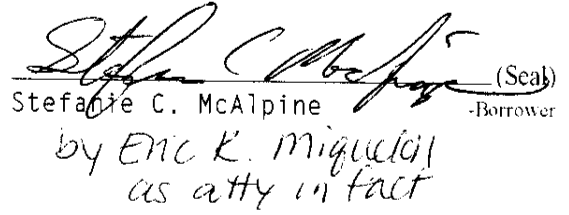 Stefanie C McAlpine (Seal)
Stefanie C. McAlpine -Borrower
by Eric K.
as atty in fact